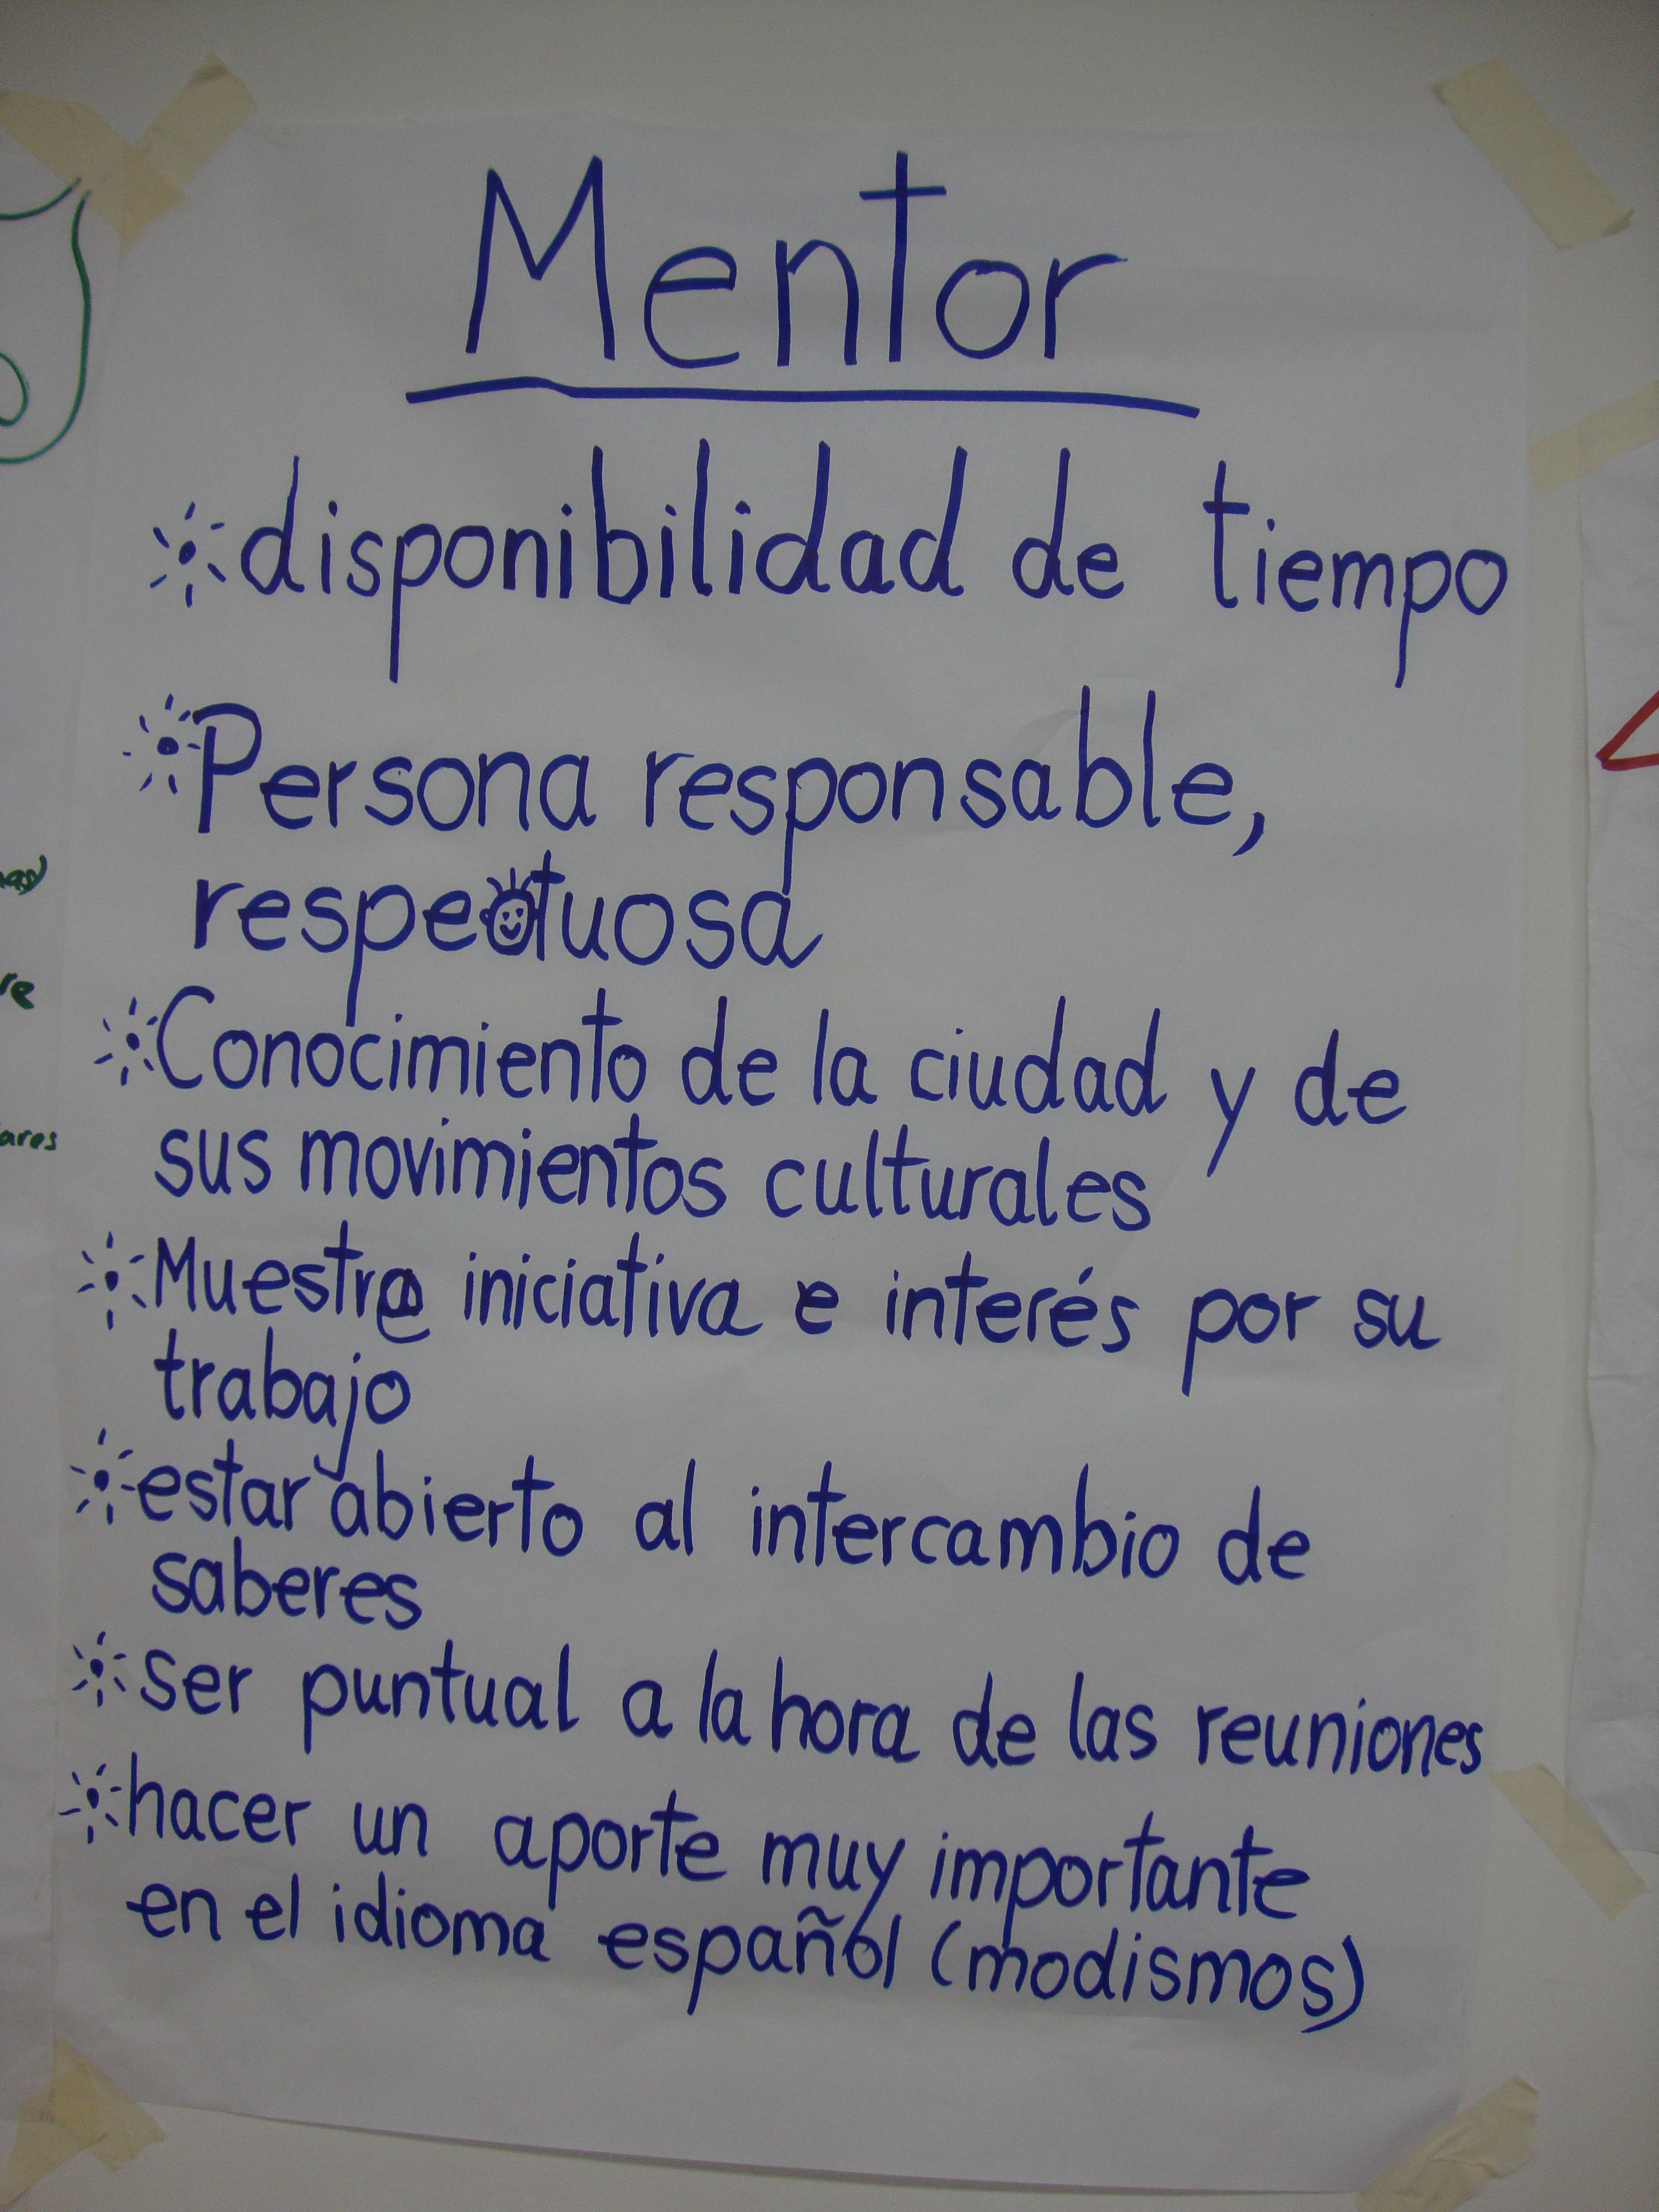 Mentor
disponibilidad de tiempo
Persona responsable,
respectuosa
Conocimiento de la ciudad y de
sus movimientos culturales
Muestre iniciativa e interés por su
trabajo
estar abierto al intercambio de
saberes
ser puntual a la hora de las reuniones
hacer un aporte muy importante
en el idioma español (modismos)